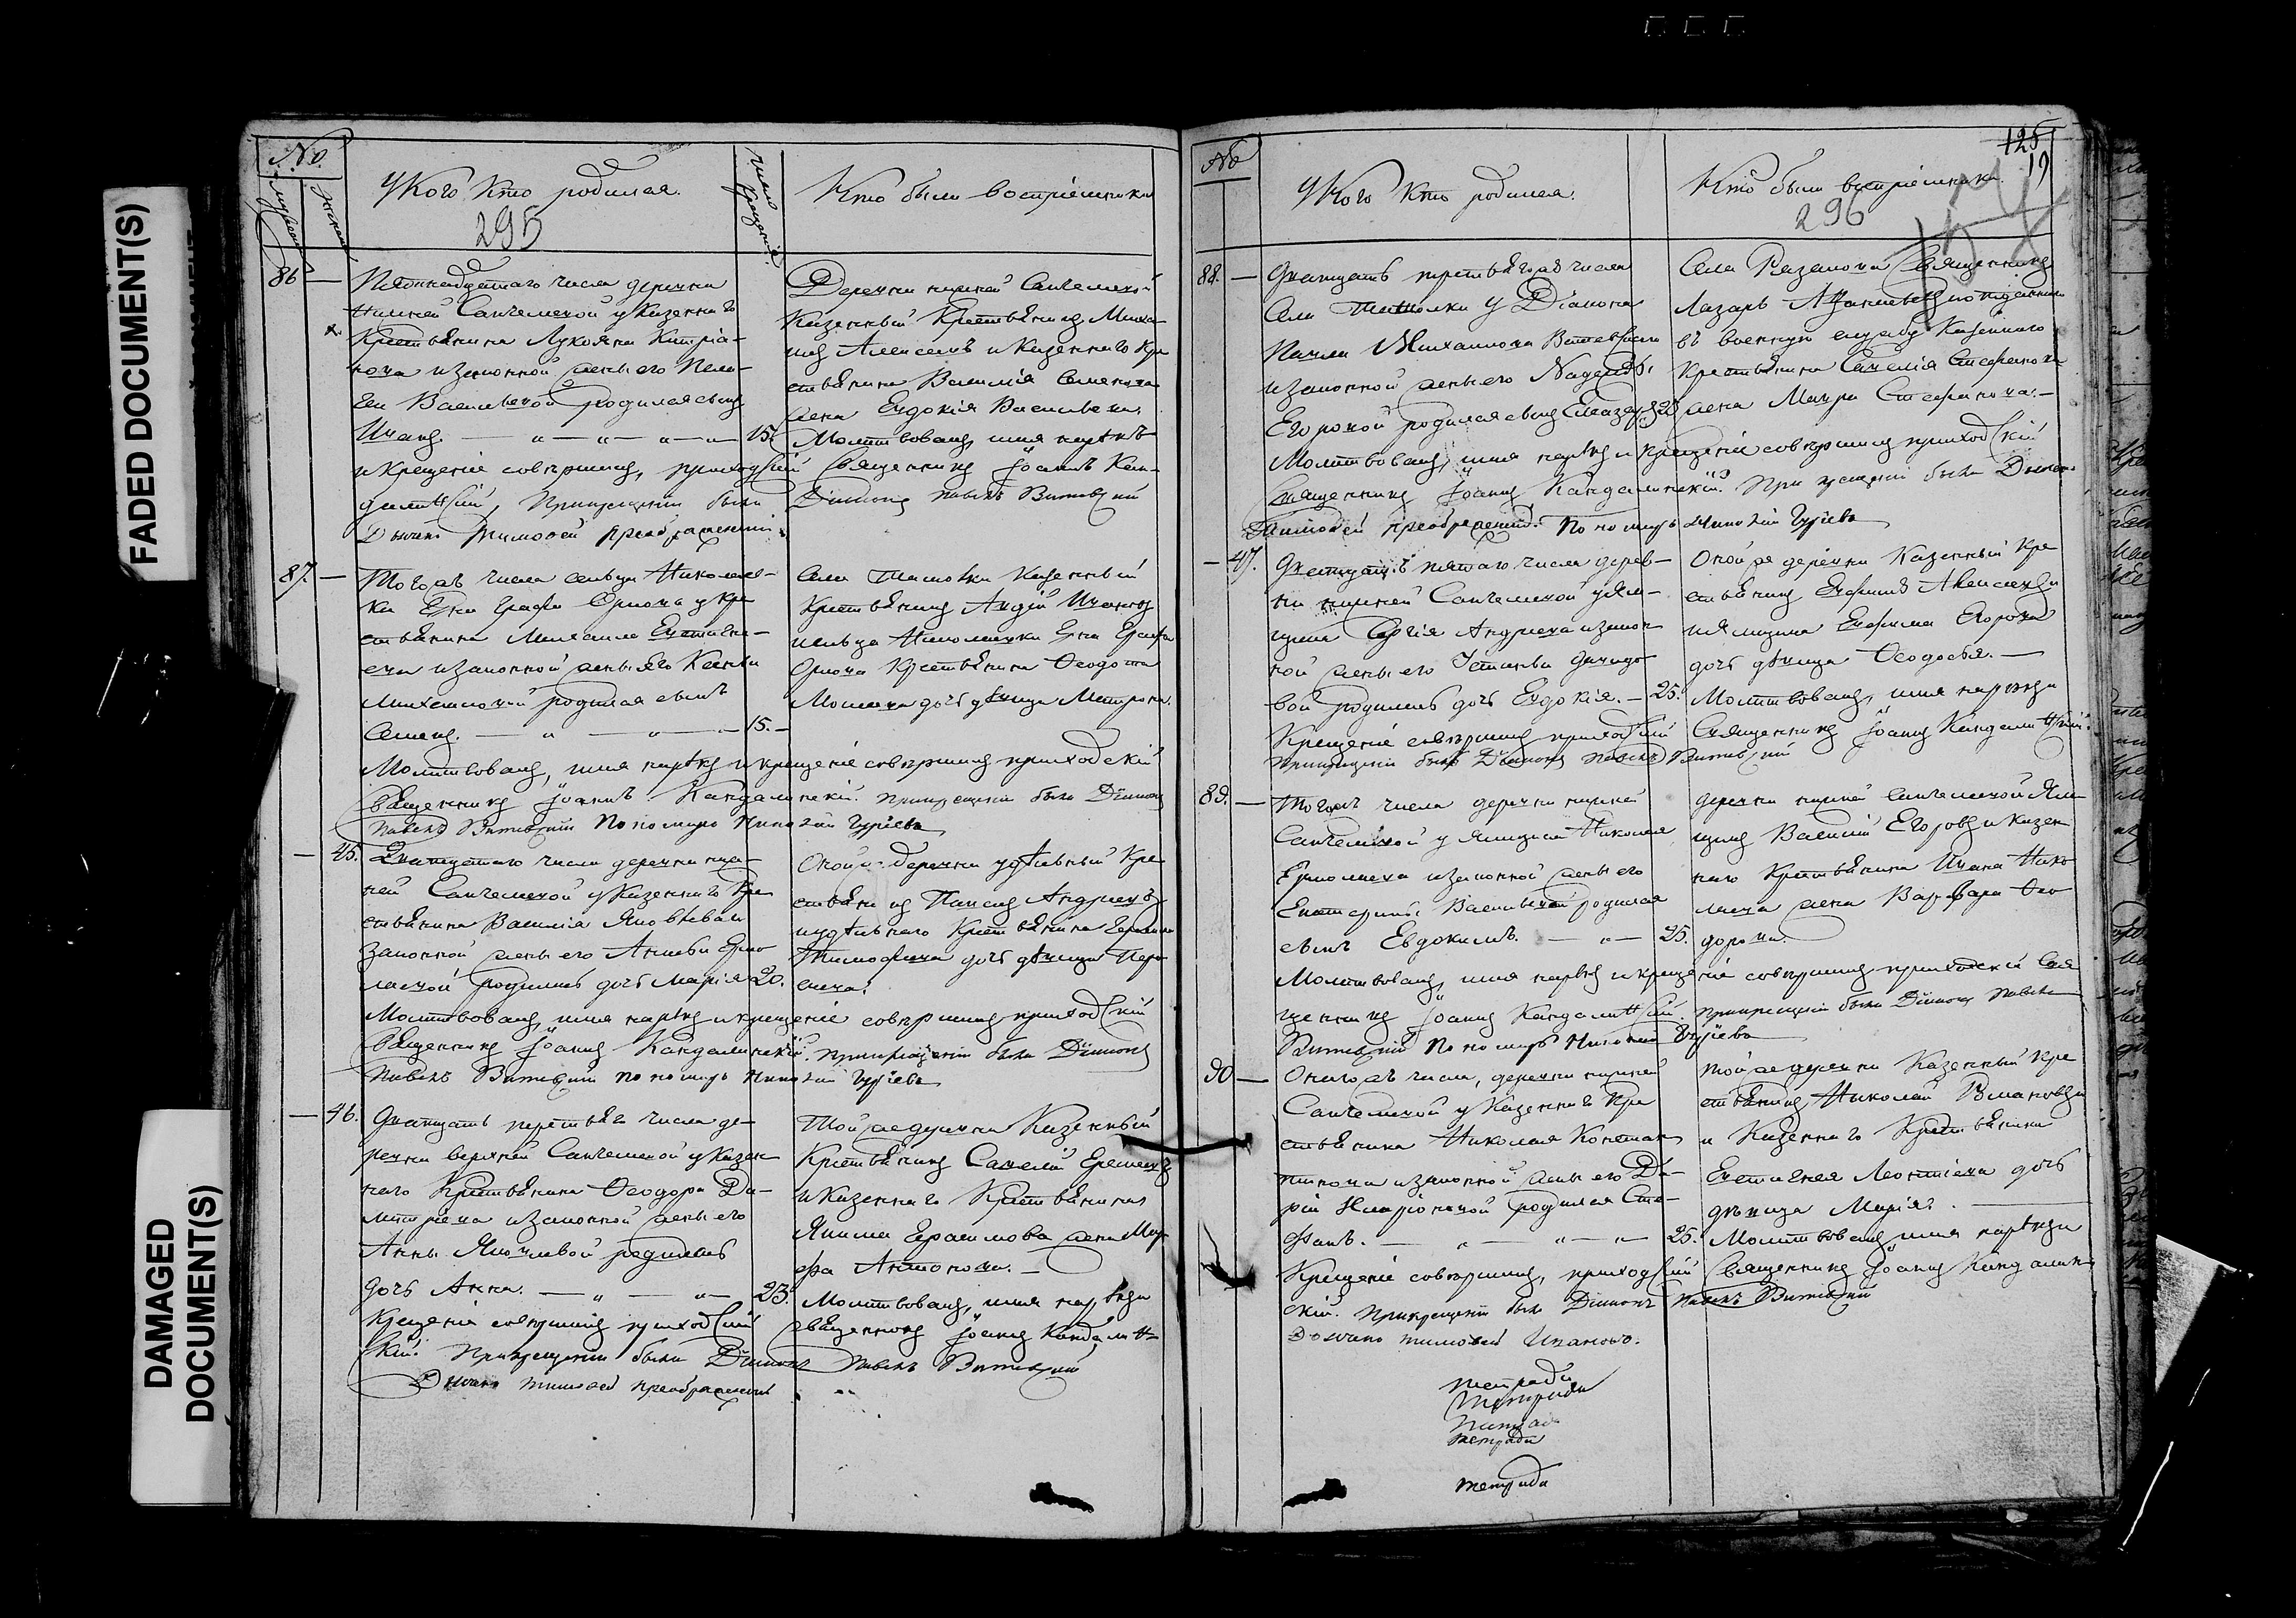 FADED DOCUMENT(S)
DAMAGED
DOCUMENT(S)
№
мужеск
женск
У кого кто родился.
295
число крещенія
Кто были воспріемники
86 —
Пятоннадцетаго числа деревни
нижней Санчелеевой у казеннаго
крестьянина Лукояна Кипріа-
нова и законной жены его Пела-
геи Васильевой родился сынъ
Иванъ. — „ — „ — „ — 15.
Деревни нижней Санчелеевой
казенный крестьянинъ Миха-
илъ Алексеевъ и казеннаго кре
стьянина Василія Семенова
жена Евдокія Васильева.
Молитвовалъ, имя нарѣкъ
и крещеніе совершилъ, приходскій Священникъ Іоаннъ Кан-
далинскій, При крещеніи были Діаконъ Павелъ Витевскій
Дьячекъ Тимофей Преображенскій
87. —
Того жъ числа сельца Николаев-
ки Ея Графа Орлова у кре
стьянина Михаила Евтигне-
ева и законной жены его Ксеніи
Михайловой родился сынъ
Семенъ. — „ — „ — 15. —
Села Ташолки казенный
крестьянинъ Андрей Ивановъ
и сельца Николаевки Ея Графа
Орлова крестьянина Феодота
Моисеева дочь дѣвица Матрона.
Молитвовалъ, имя нарѣкъ и крещеніе совершилъ приходскій
Священникъ Іоаннъ Кандалинскій. При крещеніи были Діаконъ
Павелъ Витевскій Пономарь Николай Гурьевъ
— 45.
Двадцатаго числа деревни ниж-
ней Санчелеевой у казеннаго кре
стьянина Василія Яковлева и
законной жены его Анны Ермо
лаевой родилась дочь Марія 20.
Оной же деревни удѣльный кре
стьянинъ Андреевъ
и удѣльнаго крестьянина Герасима
Тимофеева дочь дѣвица
Молитвовалъ, имя нарѣкъ и крещеніе совершилъ приходскій
Священникъ Іоаннъ Кандалинскій. При крещеніи были Діаконъ
Павелъ Витевскій Пономарь Николай Гурьевъ
— 46.
Двадцать третьяго числа де-
ревни верхней Санчелеевой у казен
наго крестьянина Феодора Ди-
митріева и законной жены его
Анны Яковлевой родилась
дочь Анна. — „ — „ — 23.
Той же деревни казенный
крестьянинъ Савелій Еремеевъ
и казеннаго крестьянина
Якима Герасимова жена Мар
фа Антонова. —
Молитвовалъ, имя нарѣкъ и
Крещеніе совершилъ приходскій Священникъ Іоаннъ Кандалин-
скій. При крещеніи были Діаконъ Павелъ Витевскій
Дьячекъ Тимофей Преображенскій
125
19
№
У кого кто родился.
Кто были воспріемники
296
88. —
Двадцать третьяго жъ числа
Села Ташолки у Діакона
Павла Михайлова Витевскаго
и законной жены его Надежды
Егоровой родился сынъ Елеазаръ 23
Села Рязанова Священникъ
Лазарь и отданнаго
въ военную службу казеннаго
крестьянина Савелія Стефанова
жена Мавра Стефанова. —
Молитвовалъ, имя нарѣкъ и крещеніе совершилъ приходскій
Священникъ Іоаннъ Кандалинскій. При крещеніи были Дьячекъ
Тимофей Преображенскій. Пономарь Николай Гурьевъ
— 47.
Двадцать пятаго числа дерев-
ни нижней Санчелеевой у Ям-
щика Сергія Андреева и закон
ной жены его Устиньи Давидо
вой родилась дочь Евдокія. — 25.
Оной же деревни казенный кре
стьянинъ Ефимъ Алексеевъ и
и ямщика Ефима Егорова
дочь дѣвица Феодосья. —
Молитвовалъ, имя нарѣкъ и
Крещеніе совершилъ приходскій Священникъ Іоаннъ Кандалинскій.
При крещеніи былъ Діаконъ Павелъ Витевскій
89. —
Того жъ числа деревни нижней
Санчелеевой у ямщика Николая
Ермолаева и законной жены его
Екатерины Васильевой родился
сынъ Евдокимъ. — „ — 25.
деревни нижней Санчелеевой Ям
щикъ Василій Егоровъ и казен
наго крестьянина Ивана Нико
лаева жена Варвара Фео
дорова.
Молитвовалъ, имя нарѣкъ и крещеніе совершилъ приходскій Свя
щенникъ Іоаннъ Кандалинскій. При крещеніи были Діаконъ Павелъ
Витевскій Пономарь Николай Гурьевъ
90 —
Онаго жъ числа, деревни нижней
Санчелеевой у казеннаго кре
стьянина Николая Констан
тинова и законной жены его Да-
ріи Иларіоновой родился Сте-
фанъ. — „ — „ — „ — 25.
Той же деревни казенный кре
стьянинъ Николай Романовъ
и казеннаго крестьянина
Евтигнея Леонтіева дочь
дѣвица Марія. —
Молитвовалъ имя нарѣкъ и
Крещеніе совершилъ, приходскій Священникъ Іоаннъ Кандалин-
скій. При крещеніи были Діаконъ Павелъ Витевскій
Дьячекъ Тимофей Ивановъ.
тетради
тетради
тетради
тетради